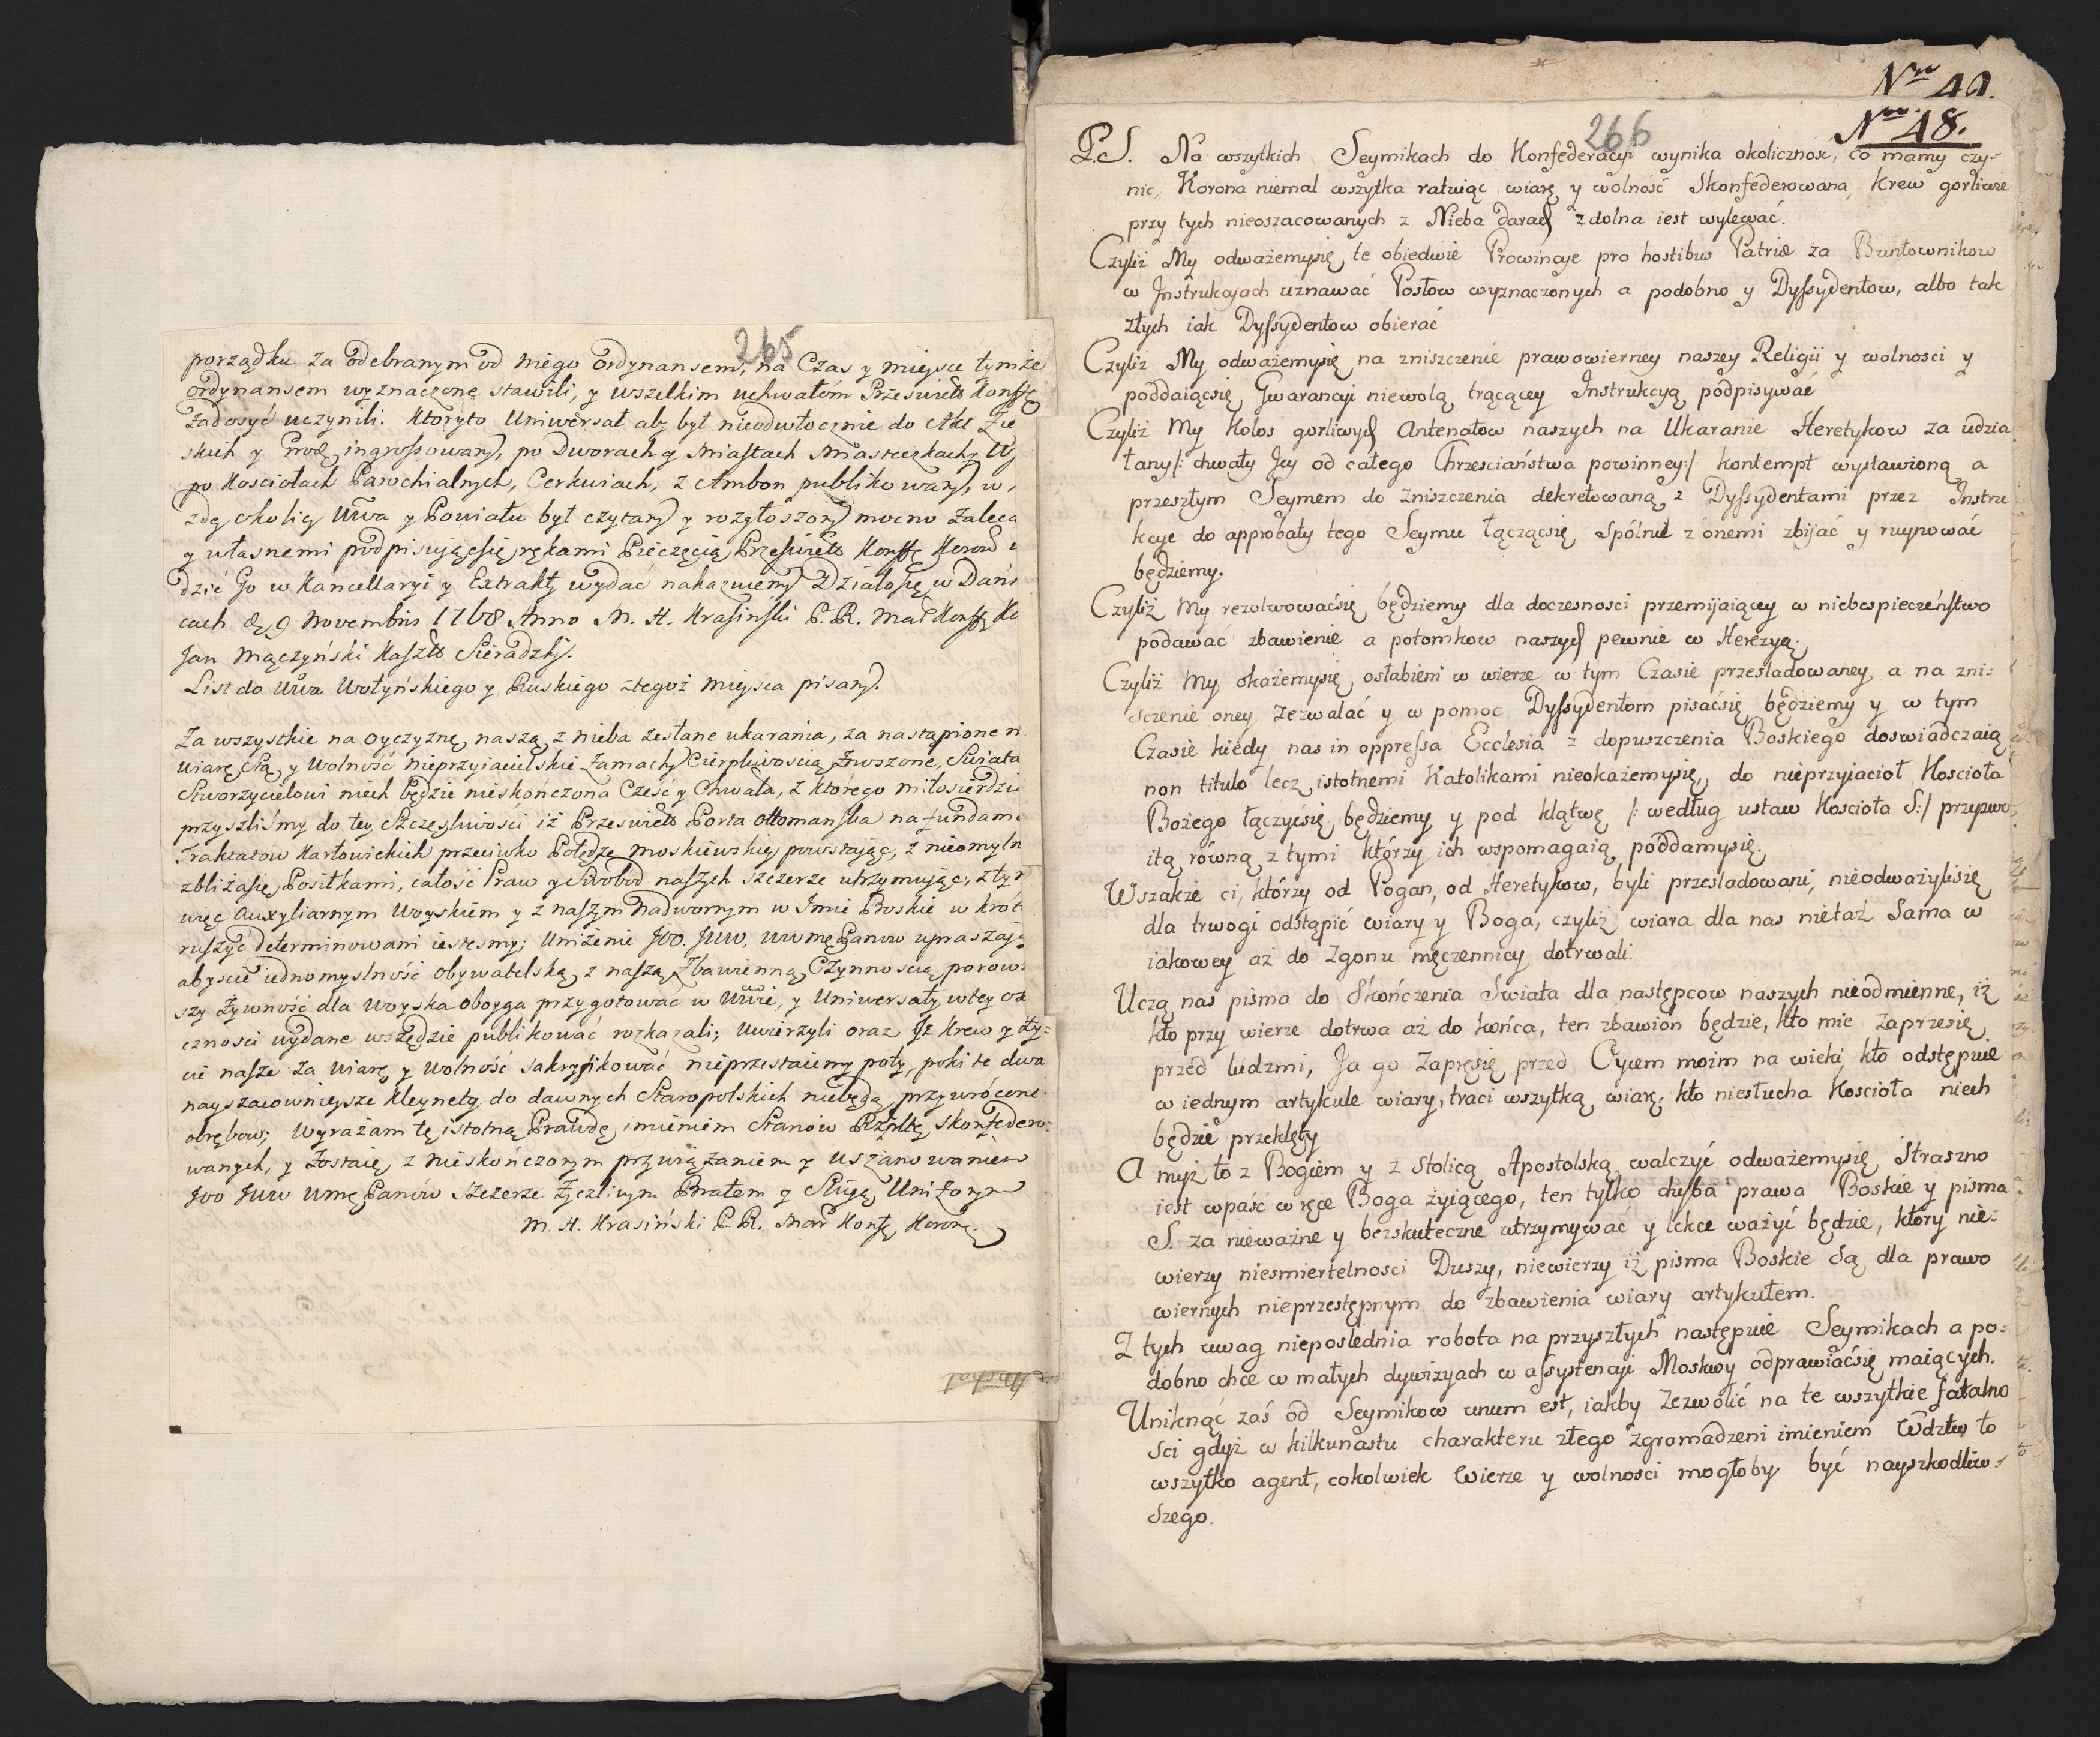 265
porządku za odebranym od niego ordynansem, na Czas y mieysce tymże
ordynansem wyznaczone stawili, y wszelkim uchwałom Przeswiet Konffę
zadosyć uczynili. Ktoryto Uniwersał aby był nieodwłocznie do Akt Zie
skich y Grodz ingrossowany, po Dworach y Miastach Miasteczkach,
po Kosciołach Parochialnych, Cerkwiach, z Ambon publikowany, w
zdę okolicy Uwa y Powiatu był czytany y rozgłoszony mocno zaleca
y własnemi podpisującsię rękami Pieczęcią Przeswiet Konffę Koron
dzić Go w Kancellaryi y Extrakty wydać nakazuiemy Działosię w Dań
cach d, 9 Novembris 1768 Anno M. H. Krasiński P. R. Mar Konffę Ko
Jan Mączyński Kaszt Sieradzki.
List do Uwa Wołyńskiego y Ruskiego ztegoż Mieysca pisany.
Za wszystkie na oyczyznę naszą z nieba zesłane ukarania, za nastąpione n
wiarę Stą y Wolność nieprzyiacielskie Zamachy Cierpliwoscią znoszone, Swiata
Stworzycielowi niech będzie nieskończona Cześć y Chwała, z którego miłosierdzia
przyszliśmy do tey szczęsliwości iż Przeswiet Porta Ottomanska na fundame
Traktatow Karłowickich przeciwko Potędze moskiewskiey powstając, z nieomyln
zbliżasię Posiłkami, całość Praw y Swobod naszych szczerze utrzymując, z tym
więc Auxyliarnym Woyskiem y z naszym Nadwornym w Imie Boskie w krót
ruszyć determinowani iestesmy; Uniżenie JOO. JWW. WWmę Panow upraszaią
abyscie iednomyslność obywatelską, z naszą Zbawienną Czynnoscią porow
szy Żywność dla Woyska oboyga przygotować w Uwie, y Uniwersały w tey ok
czności wydane wszędzie publikować rozkazali; Uwierzyli oraz Iż Krew y ży=
cie nasze za wiarę y wolność sakryfikować nieprzestaiemy poty, poki te dwa
nayszacownieysze kleynoty do dawnych Staropolskich niebędą przywrócone
obrębow; Wyrażam tę istotną Prawdę imieniem Stanow Rzpltey skonfedero=
wanych, y zostaię z nieskończonym przywiązaniem y uszanowaniem
JOO JWW Wmę Panow szczerze życzliwym Bratem y Sługą Uniżonym
M. H. Krasiński P. R. Mar Konfę Koronę.
Nro 49.
Nro 48.
266
P.S. Na wszytkich Seymikach do Konfederacyi wynika okolicznosc, co mamy czy=
nic, Korona niemal wszytka ratuiąc wiarę y wolność Skonfederowana, Krew gorliwie
przy tych nieoszacowanych z Nieba darach zdolna iest wylewać.
Czyliż My odważemysię te obiedwie Prowincye pro hostibus Patriæ za Buntownikow
w Instrukcyach uznawać Posłow wyznaczonych a podobno y Dyssydentow, albo tak
złych iak Dyssydentow obierać
Czyliż My odważemysię na zniszczenie prawowierney naszey Religii y wolnosci y
poddaiącsię Gwarancyi niewolą trącącey Instrukcyą podpisywać
Czyliż My Kolos gorliwych Antenatow naszych na Ukaranie Heretykow za udzia
łany /: chwały Jey od całego Chrzesciaństwa powinney :/ kontempt wystawioną a
przeszłym Seymem do Zniszczenia dekretowaną z Dyssydentami przez Instru
kcye do approbaty tego Seymu łączącsię Spólnie z onemi zbijać y ruynować
będziemy.
Czyliż My rezolwowaćsię będziemy dla doczesnosci przemijaiącey w niebespieczeństwo
podawać zbawienie a potomkow naszych pewnie w Herezyą.
Czyliż My okażemysię osłabieni w wierze w tym Czasie przesladowaney, a na zni=
sczenie oney zezwalać y w pomoc Dyssydentom pisaćsię będziemy y w tym
Czasie kiedy nas in oppressa Ecclesia z dopuszczenia Boskiego doswiadczaią
non titulo lecz istotnemi Katolikami nieokażemysię, do nieprzyjacioł Koscioła
Bożego łączycsię będziemy y pod klątwę /: według ustaw Koscioła S: :/ przyzwo
itą równą z tymi którzy ich wspomagaią poddamysię.
Wszakże ci, którzy od Pogan, od Heretykow, byli przesladowani, nieodważylisię
dla trwogi odstąpić wiary y Boga, czyliż wiara dla nas nietaż Sama w
iakowey aż do Zgonu męczennicy dotrwali.
Uczą nas pisma do Skończenia Swiata dla następcow naszych nieodmienne, iż
kto przy wierze dotrwa aż do końca, ten zbawion będzie, kto mie Zaprzesię
przed ludzmi, Ja go Zapręsię przed Oycem moim na wieki, kto odstępuie
w iednym artykule wiary, traci wszytką wiarę, kto niesłucha Koscioła niech
będzie przeklęty
A myż to z Bogiem y z Stolicą Apostolską walczyć odważemysię Straszno
iest wpaść w ręce Boga żyiącego, ten tylko chyba prawa Boskie y pisma
S. za nieważne y bezskuteczne utrzymywać y lekce ważyć będzie, który nie=
wierzy niesmiertelnosci Duszy, niewierzy iż pisma Boskie Są dla prawo
wiernych nieprzestępnym do zbawienia wiary artykułem.
Z tych uwag nieposlednia robota na przyszłych następuie Seymikach a po=
dobno chce w małych dywizyach w assystencyi Moskwy odprawiaćsię maiących.
Uniknąć zaś od Seymikow unum est, iakby Zezwolić na te wszytkie fatalno
sci gdyż w kilkunastu charakteru złego zgromadzeni imieniem Wdztw to
wszytko agent, cokolwiek Wierze y wolnosci mogłoby być nayszkodliw=
szego.